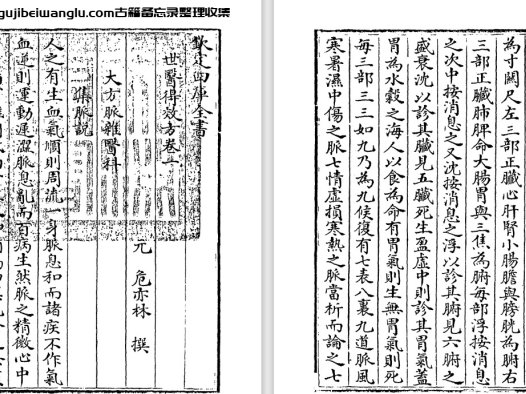 gujibeiwanglu.com古籍备忘录整理收集
欽定四庫全書
世醫得效方卷一
元 危亦林 撰
大方脈雜醫科
集脈說
人之有生血氣順則周流一身脈息和而諸疾不作氣
血逆則運動遲澀脈息亂而百病生然脈之精微心中
為寸關尺左三部正臟心肝腎小腸膽與膀胱為腑右
三部正臟肺脾命大腸胃與三焦為腑每部浮按消息
之次中按消息之又沈按消息之浮以診其腑見六腑之
盛衰沈以診其臟見五臟死生盈虛中則診其胃氣蓋
胃為水穀之海人以食為命有胃氣則生無胃氣則死
每三部三三如九乃為九候復有七表八裏九道脈風
寒暑濕中傷之脈七情虛損寒熱之脈當析而論之七